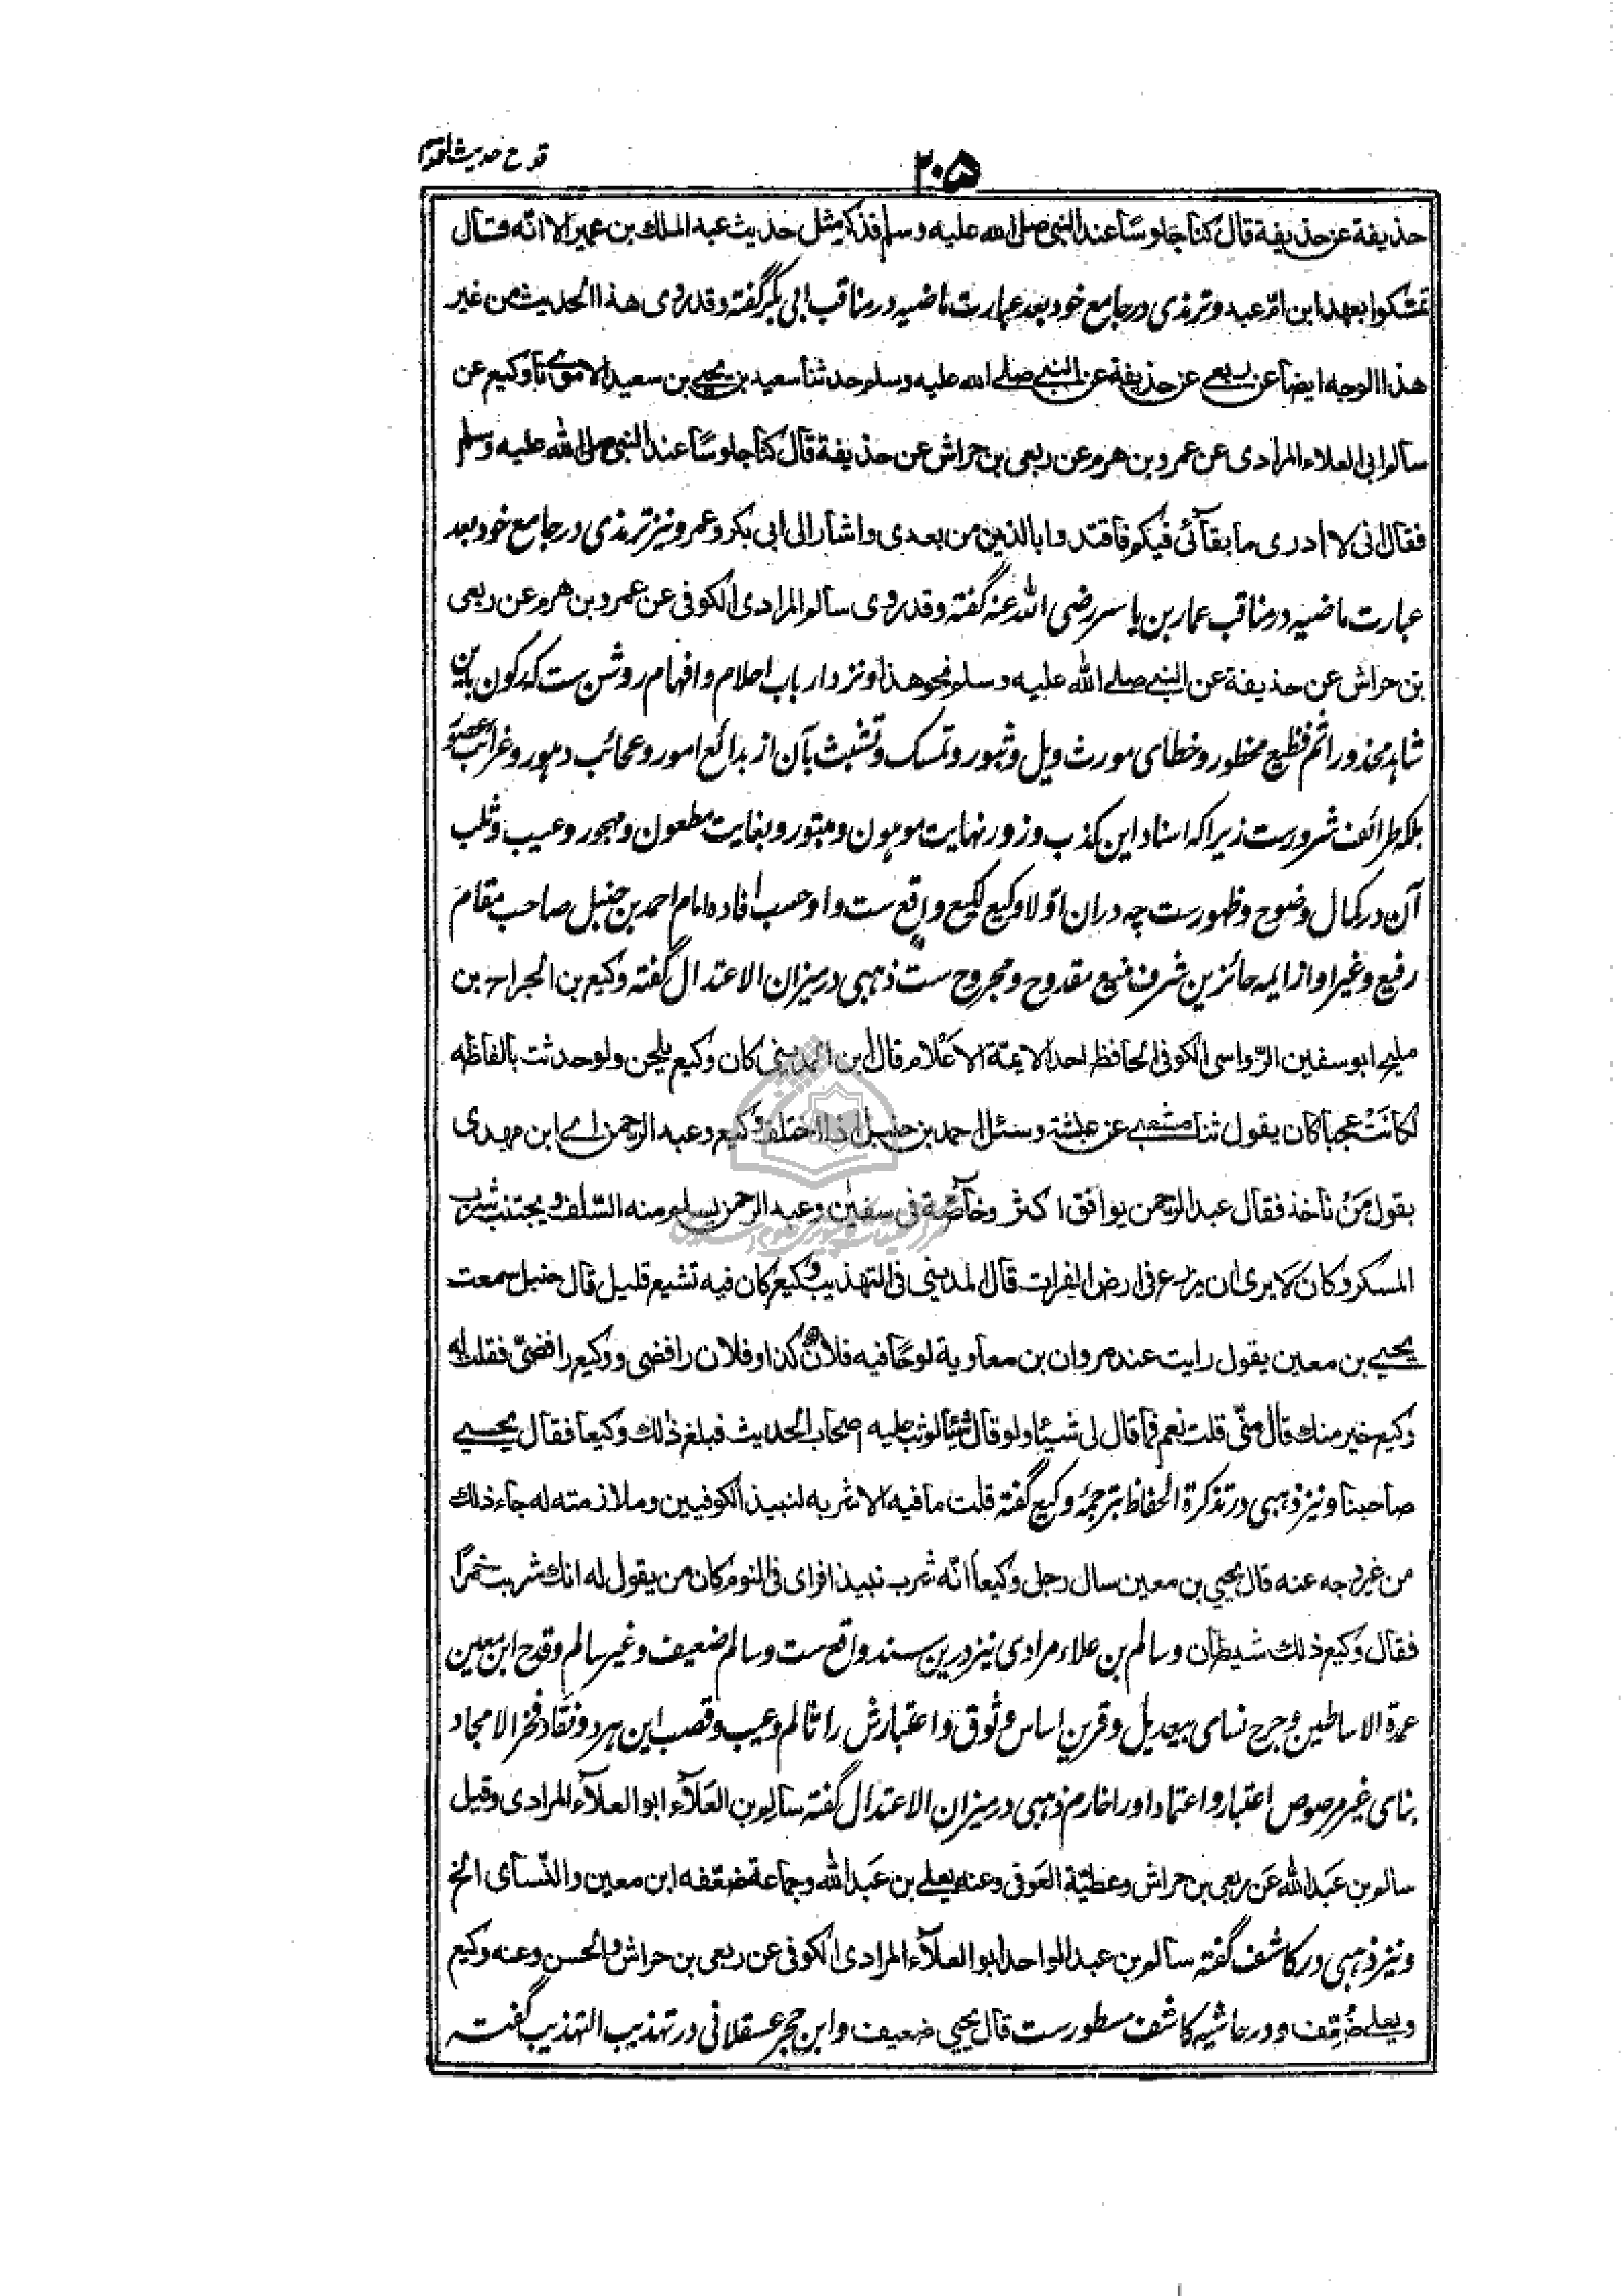 قدح حدیث اقتدا
۲۰۵
حذيفة عن حذيفة قال كنا جلوسًا عند النبي صلى الله عليه وسلم فذكر مثل حديث عبد الملك بن عمير الا انّه قال
تمسّكوا بعهد ابن امّ عبد و ترمذی در جامع خود بعد عبارت ماضیه در مناقب ابی بکر گفته وقد روى هذا الحديث من غير
هذا الوجه ايضاً عن ربعي عن حذيفة عن النبي صلى الله عليه وسلم حدثنا سعيد بن يحيى بن سعيد الاموي نا وكيع عن
سالم ابى العلاء المرادى عن عمرو بن هرم عن ربعى بن حراش عن حذيفة قال كنا جلوسًا عند النبى صلى الله عليه وسلم
فقال انى لا ادرى ما بقائى فيكم فاقتدوا بالذين من بعدى واشار الى ابى بكر وعمر و نیز ترمذی در جامع خود بعد
عبارت ماضیه در مناقب عمار بن یاسر رضی الله عنه گفته وقد روى سالم المرادى الكوفى عن عمرو بن هرم عن ربعى
بن حراش عن حذيفة عن النبي صلى الله عليه وسلم نحو هذا و نزد ارباب احلام و افهام روشن ست که رکون باین
شاهد محذور اثم فظیع محظور و خطای مورث ویل و ثبور و تمسک و تشبث بآن از بدائع امور و عجائب دهور و غرائب
بلکه طرائف شرورست زیرا که اسناد این کذب و زور نهایت موهون و مبتور و بغایت مطعون و مهجور و عیب و ثلب
آن در کمال وضوح و ظهورست چه دران اوّلا وکیع لکیع واقع ست و او حسب افاده امام احمد بن حنبل صاحب مقام
رفیع و غیر او از ایمه حائزین شرف منیع مقدوح و مجروح ست ذهبی در میزان الاعتدال گفته وكيع بن الجراح بن
مليح ابو سفين الرّواسى الكوفى الحافظ احد الايمّة الاعلام قال ابن المدينى كان وكيع يلحن ولو حدثت بالفاظه
لكانت عجباً كان يقول ثنا مسعر عن عيشة وسئل احمد بن حنبل اذا اختلف وكيع وعبد الرحمن اے ابن مهدى
بقول مَن نأخذ فقال عبد الرحمن يوافق اكثر وخاصّة فى سفين وعبد الرحمن يسلم منه السّلف ويجتنب شرب
المسكر وكان لا يرى ان يزرع فى ارض الفرات قال المدينى فى التهذيب وكيع كان فيه تشيع قليل قال حنبل سمعت
يحيى بن معين يقول رايت عند مروان بن معاوية لوحًا فيه فلان كذا وفلان رافضى ووكيع رافضىّ فقلت له
وكيع خير منك قال منّى قلت نعم فما قال لى شيئا ولو قال شيئا لوثب عليه اصحاب الحديث فبلغ ذلك وكيعا فقال يحيى
صاحبنا و نیز ذهبی در تذکرة الحفاظ بترجمۀ وکیع گفته قلت ما فيه الا شربه لنبيذ الكوفيين وملازمته له جاء ذلك
من غير وجه عنه قال يحيى بن معين سال رجل وكيعاً انّه شرب نبيذا فراى فى النوم كان من يقول له انك شربت خمرًا
فقال وكيع ذلك شيطان و سالم بن علاء مرادی نیز درین سند واقع ست و سالم ضعیف و غیر سالم و قدح ابن معین
عمدة الاساطین و جرح نسای بیعدیل و قرین اساس وثوق و اعتبارش را ثالم و عیب و قصب این هر دو نقاد فخر الامجاد
بنای غیر مرصوص اعتبار و اعتماد او را خارم ذهبی در میزان الاعتدال گفته سالم بن العَلاء ابو العلاء المرادى وقيل
سالم بن عبد الله عن ربعى بن حراش وعطيّة العَوفى وعنه يعلى بن عبد الله وجماعة ضعّفه ابن معين والنّسائى الخ
و نیز ذهبی در کاشف گفته سالم بن عبد الواحد ابو العلاء المرادى الكوفى عن ربعى بن حراش والحسن وعنه وكيع
ويعلى ضُعِّف و در حاشیه کاشف مسطورست قال يحيى ضعيف و ابن حجر عسقلانی در تهذیب التهذیب گفته